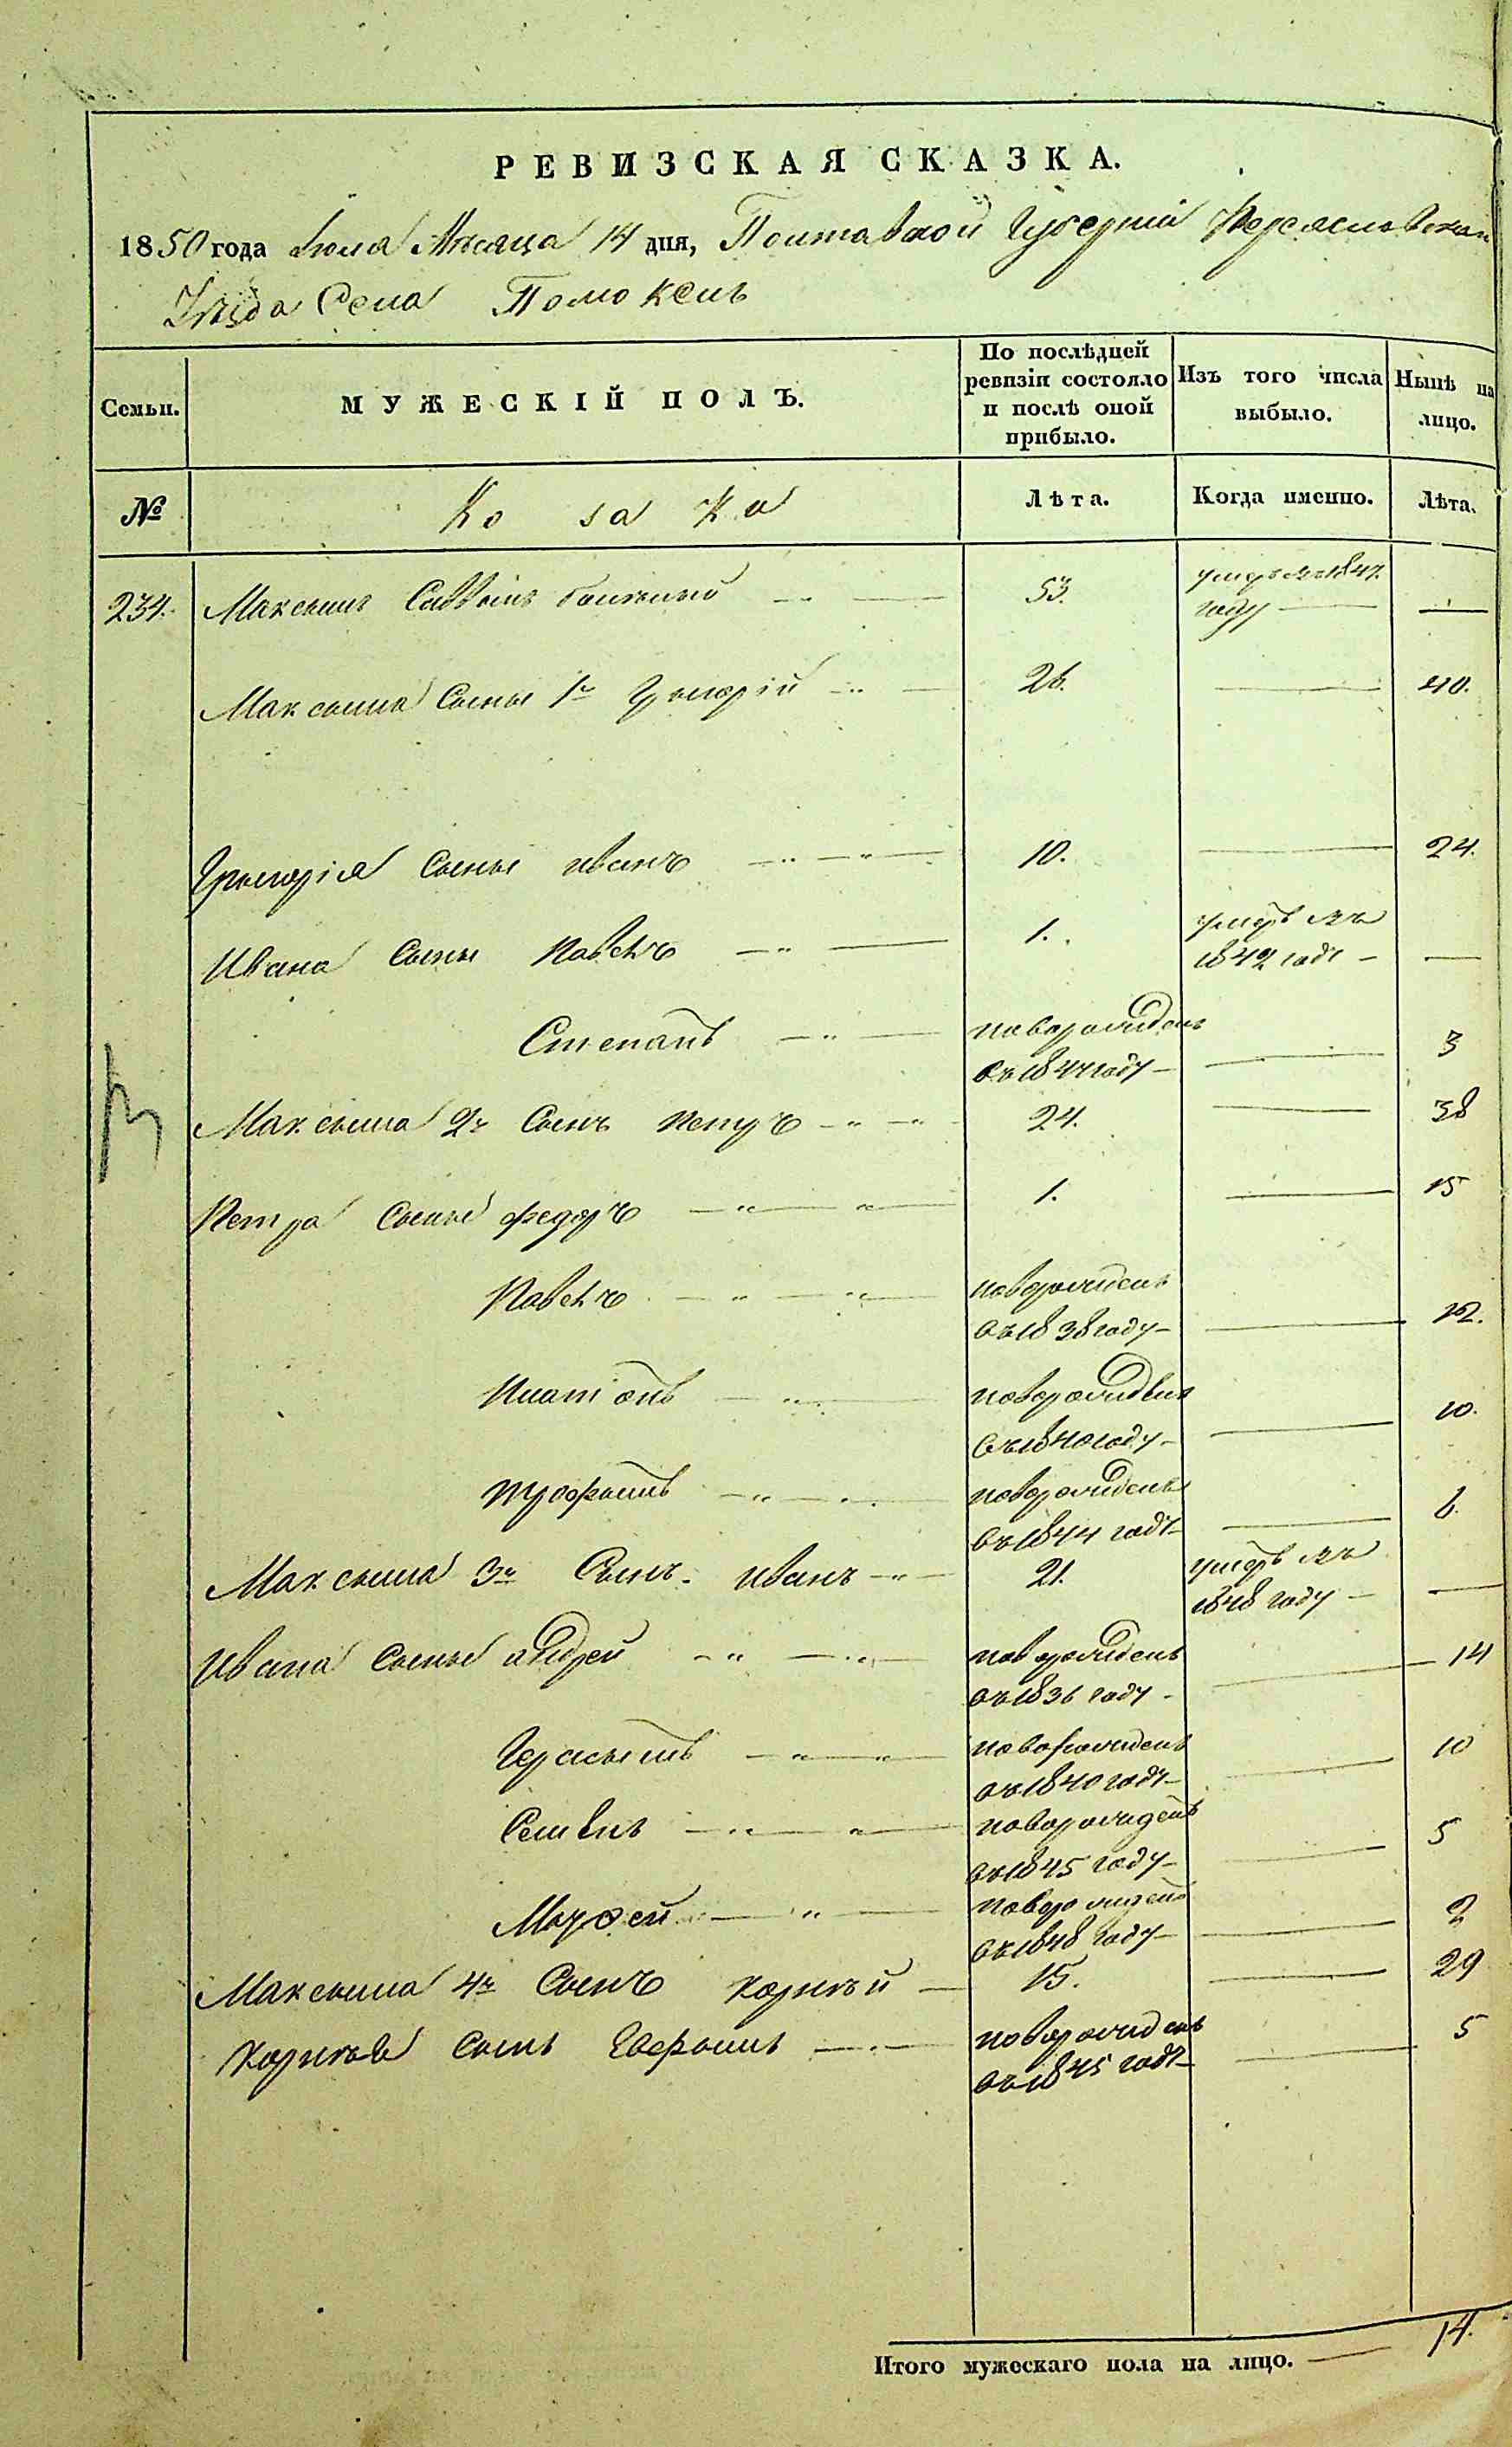 РЕВИЗСКАЯ СКАЗКА.
1850 года Июля Месяца 14 дня, Полтавской Губернии Переяславскаго
Уезда Села Помоклъ
Семьи.
МУЖЕСКІЙ ПОЛЪ.
По послѣдней ревизіи состояло и послѣ оной прибыло.
Изъ того числа выбыло.
Нынѣ на лицо.
№
Козаки
Лѣта.
Когда именно.
Лѣта.
234. Максымъ Саввинъ 53. умеръ въ 1847. году —
Максыма сыны 1й Григорій 26. — 40.
Григорія сынъ иванъ 10. — 24.
Ивана сыны Павелъ 1. умеръ въ 1842 году —
Степанъ новорожденъ въ 1847 году — 3
Максыма 2й Сынъ петръ 24. — 38
Петра сыны федоръ 1. — 15
Павелъ новорожденъ въ 1838 году — 12.
Платонъ новорожденъ въ 1840 году — 10.
трофымъ новорожденъ въ 1844 году — 6.
Максыма 3й Сынъ иванъ 21. умеръ въ 1848 году —
Ивана сыны андрей новорожденъ въ 1836 году — 14
Герасымъ новорожденъ въ 1840 году — 10
Семенъ новорожденъ въ 1845 году — 5
новорожденъ въ 1848 году — 2
Максыма 4й Сынъ корнѣй 15. — 29
Корнѣя сынъ Евфымъ новорожденъ въ 1845 году — 5
Итого мужескаго пола на лицо. — 14.